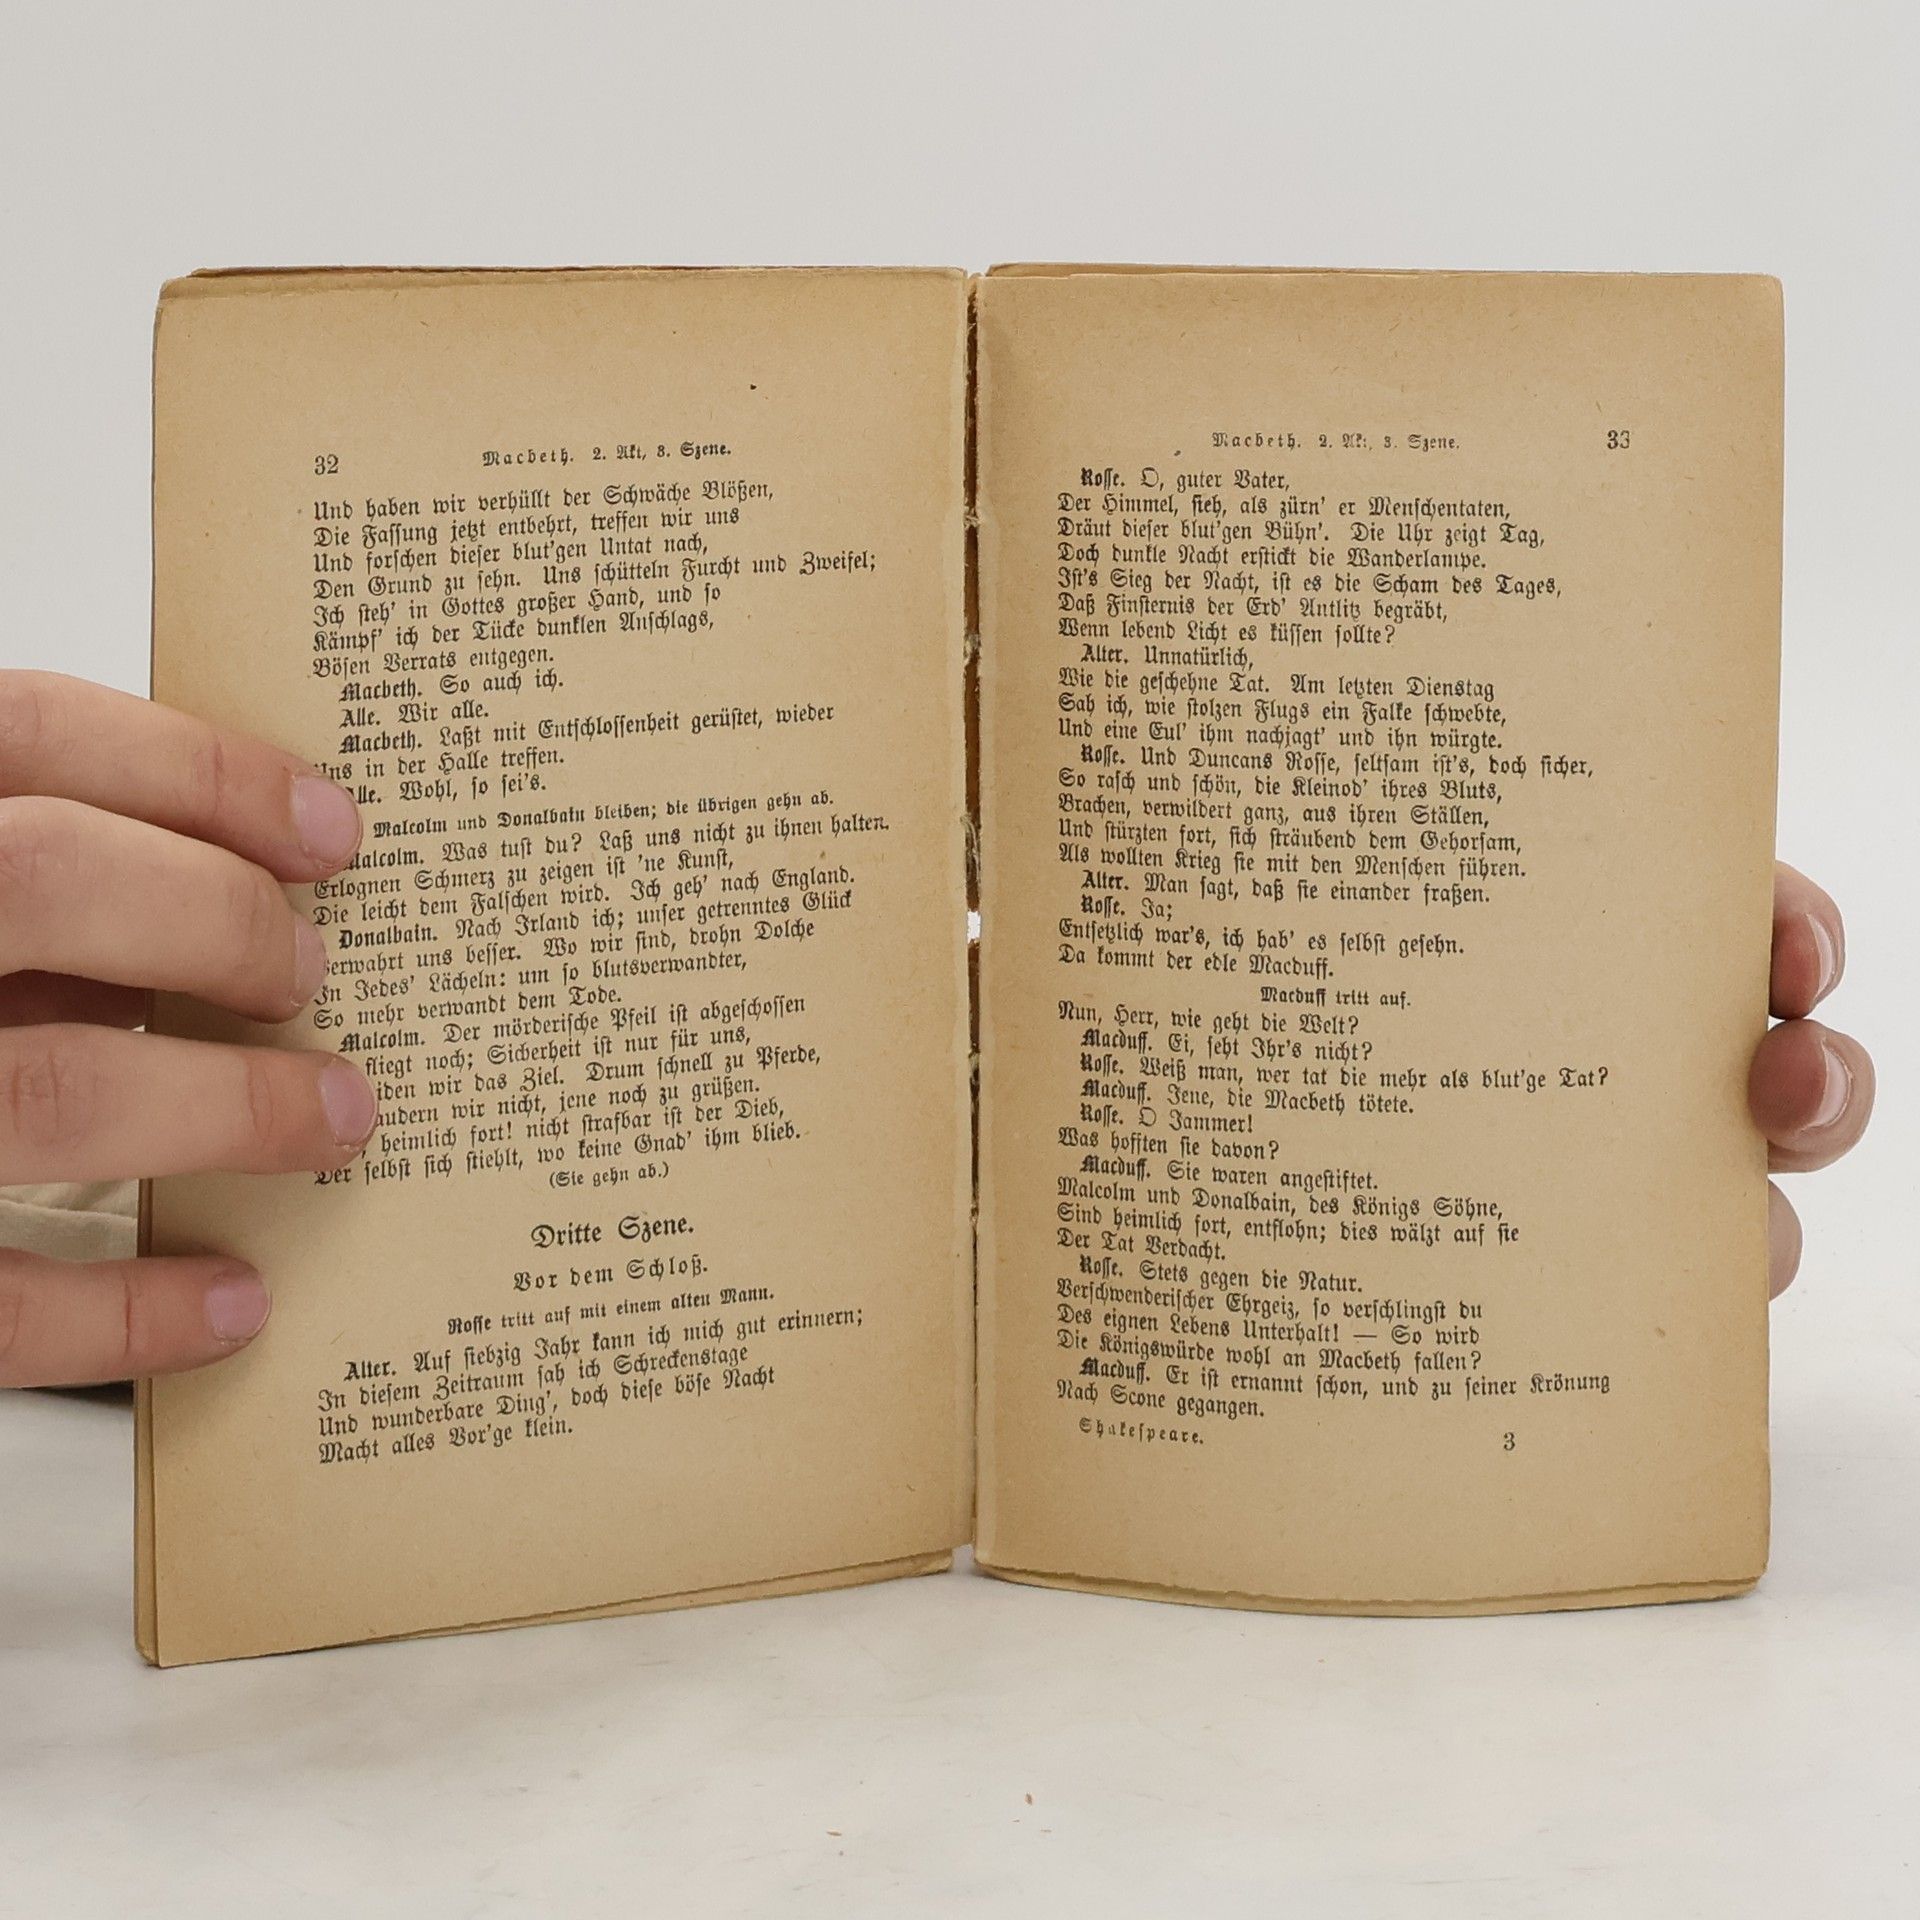 32 Macbeth. 2. Akt, 3. Szene.
Und haben wir verhüllt der Schwäche Blößen,
Die Fassung jetzt entbehrt, treffen wir uns
Und forschen dieser blut'gen Untat nach,
Den Grund zu sehn. Uns schütteln Furcht und Zweifel;
Ich steh' in Gottes großer Hand, und so
Kämpf' ich der Tücke dunklen Anschlags,
Bösen Verrats entgegen.
Macbeth. So auch ich.
Alle. Wir alle.
Macbeth. Laßt mit Entschlossenheit gerüstet, wieder
Uns in der Halle treffen.
Alle. Wohl, so sei's.
Malcolm und Donalbain bleiben; die übrigen gehn ab.
Malcolm. Was tust du? Laß uns nicht zu ihnen halten.
Erlognen Schmerz zu zeigen ist 'ne Kunst,
Die leicht dem Falschen wird. Ich geh' nach England.
Donalbain. Nach Irland ich; unser getrenntes Glück
Verwahrt uns besser. Wo wir sind, drohn Dolche
In Jedes' Lächeln: um so blutsverwandter,
So mehr verwandt dem Tode.
Malcolm. Der mörderische Pfeil ist abgeschossen
fliegt noch; Sicherheit ist nur für uns,
iden wir das Ziel. Drum schnell zu Pferde,
audern wir nicht, jene noch zu grüßen.
, heimlich fort! nicht strafbar ist der Dieb,
Der selbst sich stiehlt, wo keine Gnad' ihm blieb.
(Sie gehn ab.)
Dritte Szene.
Vor dem Schloß.
Rosse tritt auf mit einem alten Mann.
Alter. Auf siebzig Jahr kann ich mich gut erinnern;
In diesem Zeitraum sah ich Schreckenstage
Und wunderbare Ding', doch diese böse Nacht
Macht alles Vor'ge klein.
Macbeth. 2. Akt, 3. Szene. 33
Rosse. O, guter Vater,
Der Himmel, sieh, als zürn' er Menschentaten,
Dräut dieser blut'gen Bühn'. Die Uhr zeigt Tag,
Doch dunkle Nacht erstickt die Wanderlampe.
Ist's Sieg der Nacht, ist es die Scham des Tages,
Daß Finsternis der Erd' Antlitz begräbt,
Wenn lebend Licht es küssen sollte?
Alter. Unnatürlich,
Wie die geschehne Tat. Am letzten Dienstag
Sah ich, wie stolzen Flugs ein Falke schwebte,
Und eine Eul' ihm nachjagt' und ihn würgte.
Rosse. Und Duncans Rosse, seltsam ist's, doch sicher,
So rasch und schön, die Kleinod' ihres Bluts,
Brachen, verwildert ganz, aus ihren Ställen,
Und stürzten fort, sich sträubend dem Gehorsam,
Als wollten Krieg sie mit den Menschen führen.
Alter. Man sagt, daß sie einander fraßen.
Rosse. Ja;
Entsetzlich war's, ich hab' es selbst gesehn.
Da kommt der edle Macduff.
Macduff tritt auf.
Nun, Herr, wie geht die Welt?
Macduff. Ei, seht Ihr's nicht?
Rosse. Weiß man, wer tat die mehr als blut'ge Tat?
Macduff. Jene, die Macbeth tötete.
Rosse. O Jammer!
Was hofften sie davon?
Macduff. Sie waren angestiftet.
Malcolm und Donalbain, des Königs Söhne,
Sind heimlich fort, entflohn; dies wälzt auf sie
Der Tat Verdacht.
Rosse. Stets gegen die Natur.
Verschwenderischer Ehrgeiz, so verschlingst du
Des eignen Lebens Unterhalt! — So wird
Die Königswürde wohl an Macbeth fallen?
Macduff. Er ist ernannt schon, und zu seiner Krönung
Nach Scone gegangen.
Shakespeare. 3